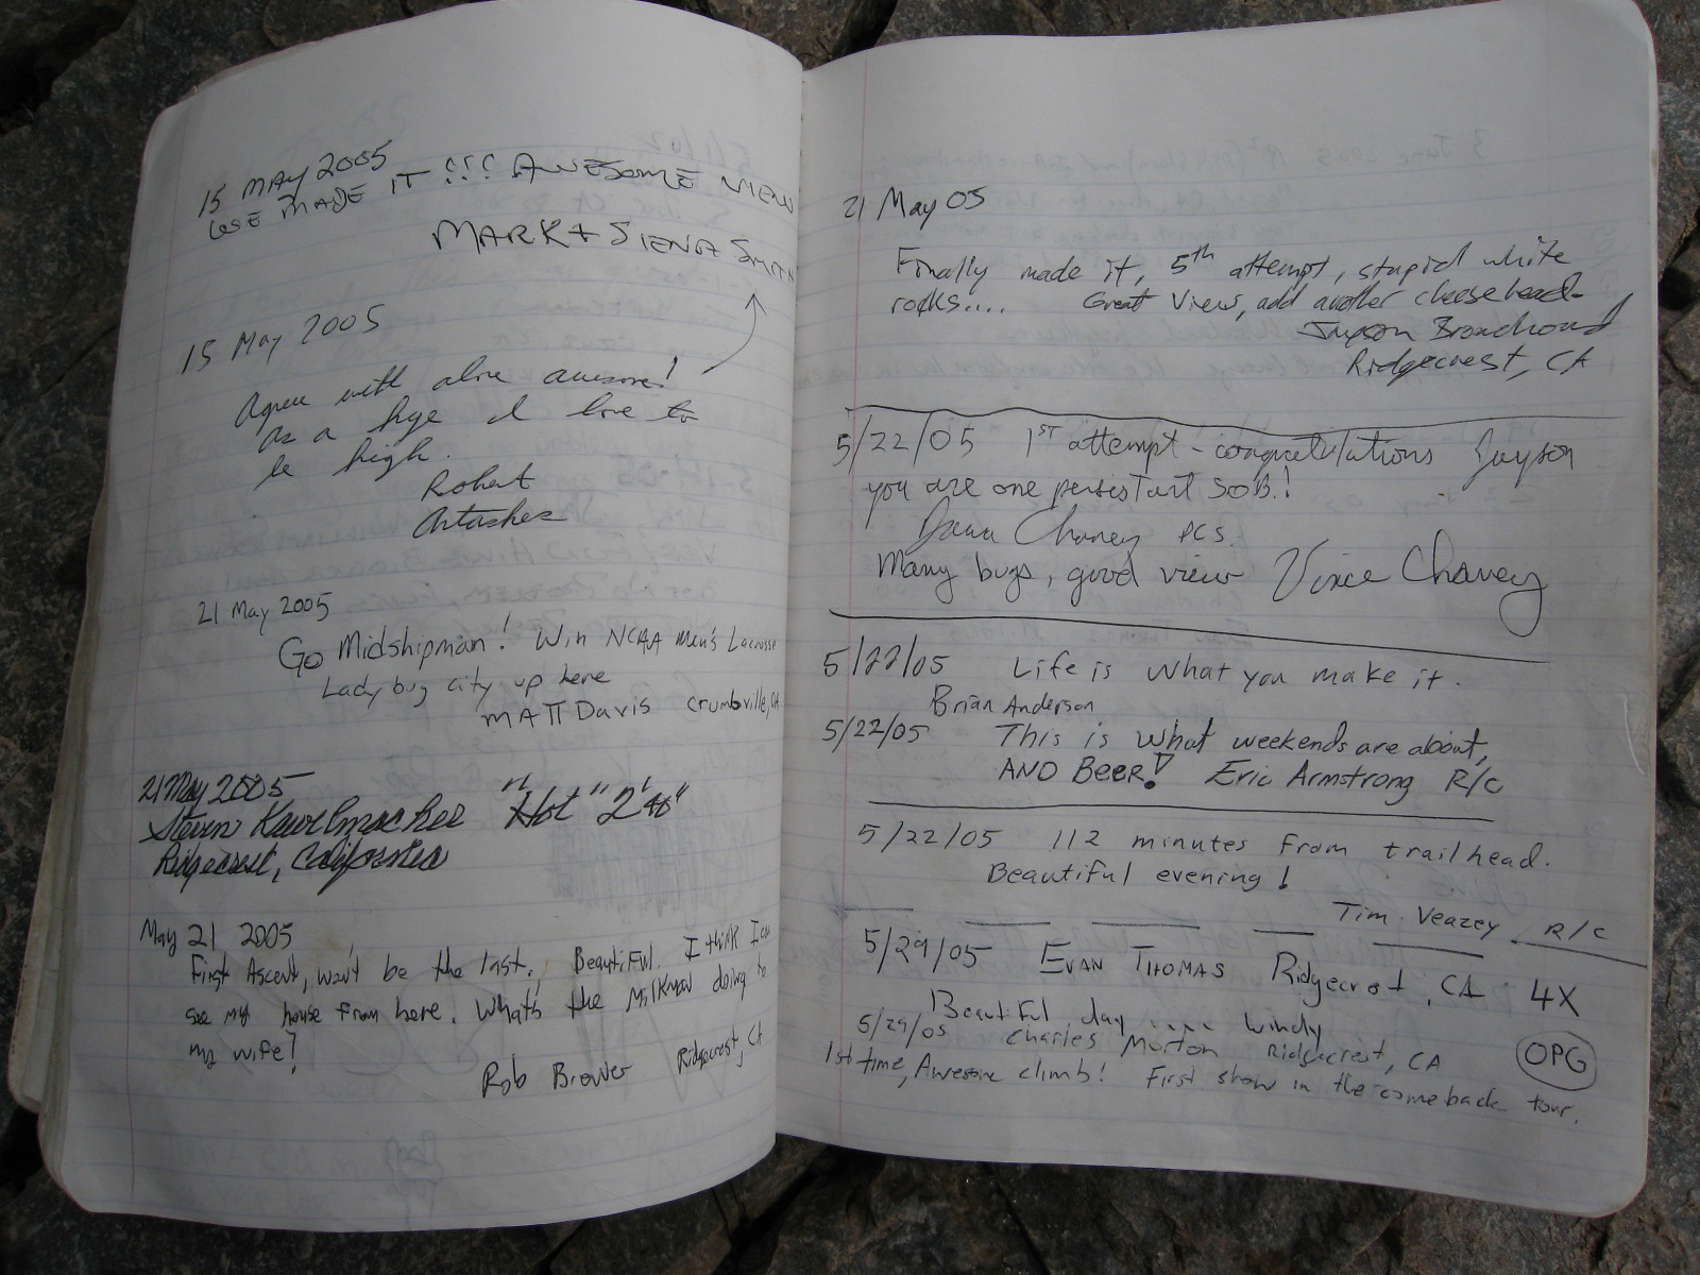 15 MAY 2005
WE MADE IT!!! AWESOME VIEW
MARK + SIENA SMITH
15 May 2005
Agree with above awesome!
As a hye I love to
be high.
Robert
21 May 2005
Go Midshipman! Win NCAA Men's Lacrosse
Lady bug city up here
MATT Davis Crumbville, CA
21 May 2005
Steven "Hot" 
Ridgecrest, California
May 21 2005
First Ascent, won't be the last. Beautiful. I think I can
see my house from here. What's the MilkMan doing to
my wife?
Rob Brower Ridgecrest, CA
21 May 05
Finally made it, 5th attempt, stupid white
rocks.... Great View, add another cheesehead-
Jayson Broadhood
Ridgecrest, CA
5/22/05 1ST attempt - congratulations Jayson
you are one persistant SOB.!
Dawn Chaney PCS.
Many bugs, good view Vince Chaney
5/22/05 Life is what you make it.
Brian Anderson
5/22/05 This is what weekends are about,
AND BEER! Eric Armstrong R/C
5/22/05 112 minutes from trailhead.
Beautiful evening!
Tim Veazey R/C
5/29/05 EVAN THOMAS Ridgecrest, CA 4X
Beautiful day .... windy
5/29/05 Charles Morton Ridgecrest, CA OPG
1st time, Awesome climb! First show in the comeback tour.